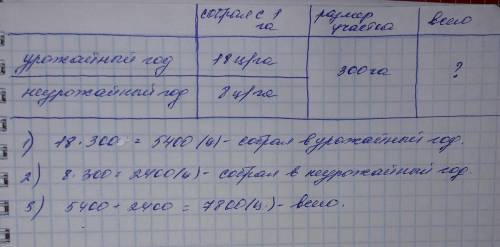 собрал с 1 га | размер участка | всего
урожайный год | 18 ц/га | 300 га | ?
неурожайный год | 8 ц/га
1) 18 · 300 = 5400 (ц) - собрал в урожайный год.
2) 8 · 300 = 2400 (ц) - собрал в неурожайный год.
3) 5400 + 2400 = 7800 (ц) - всего.